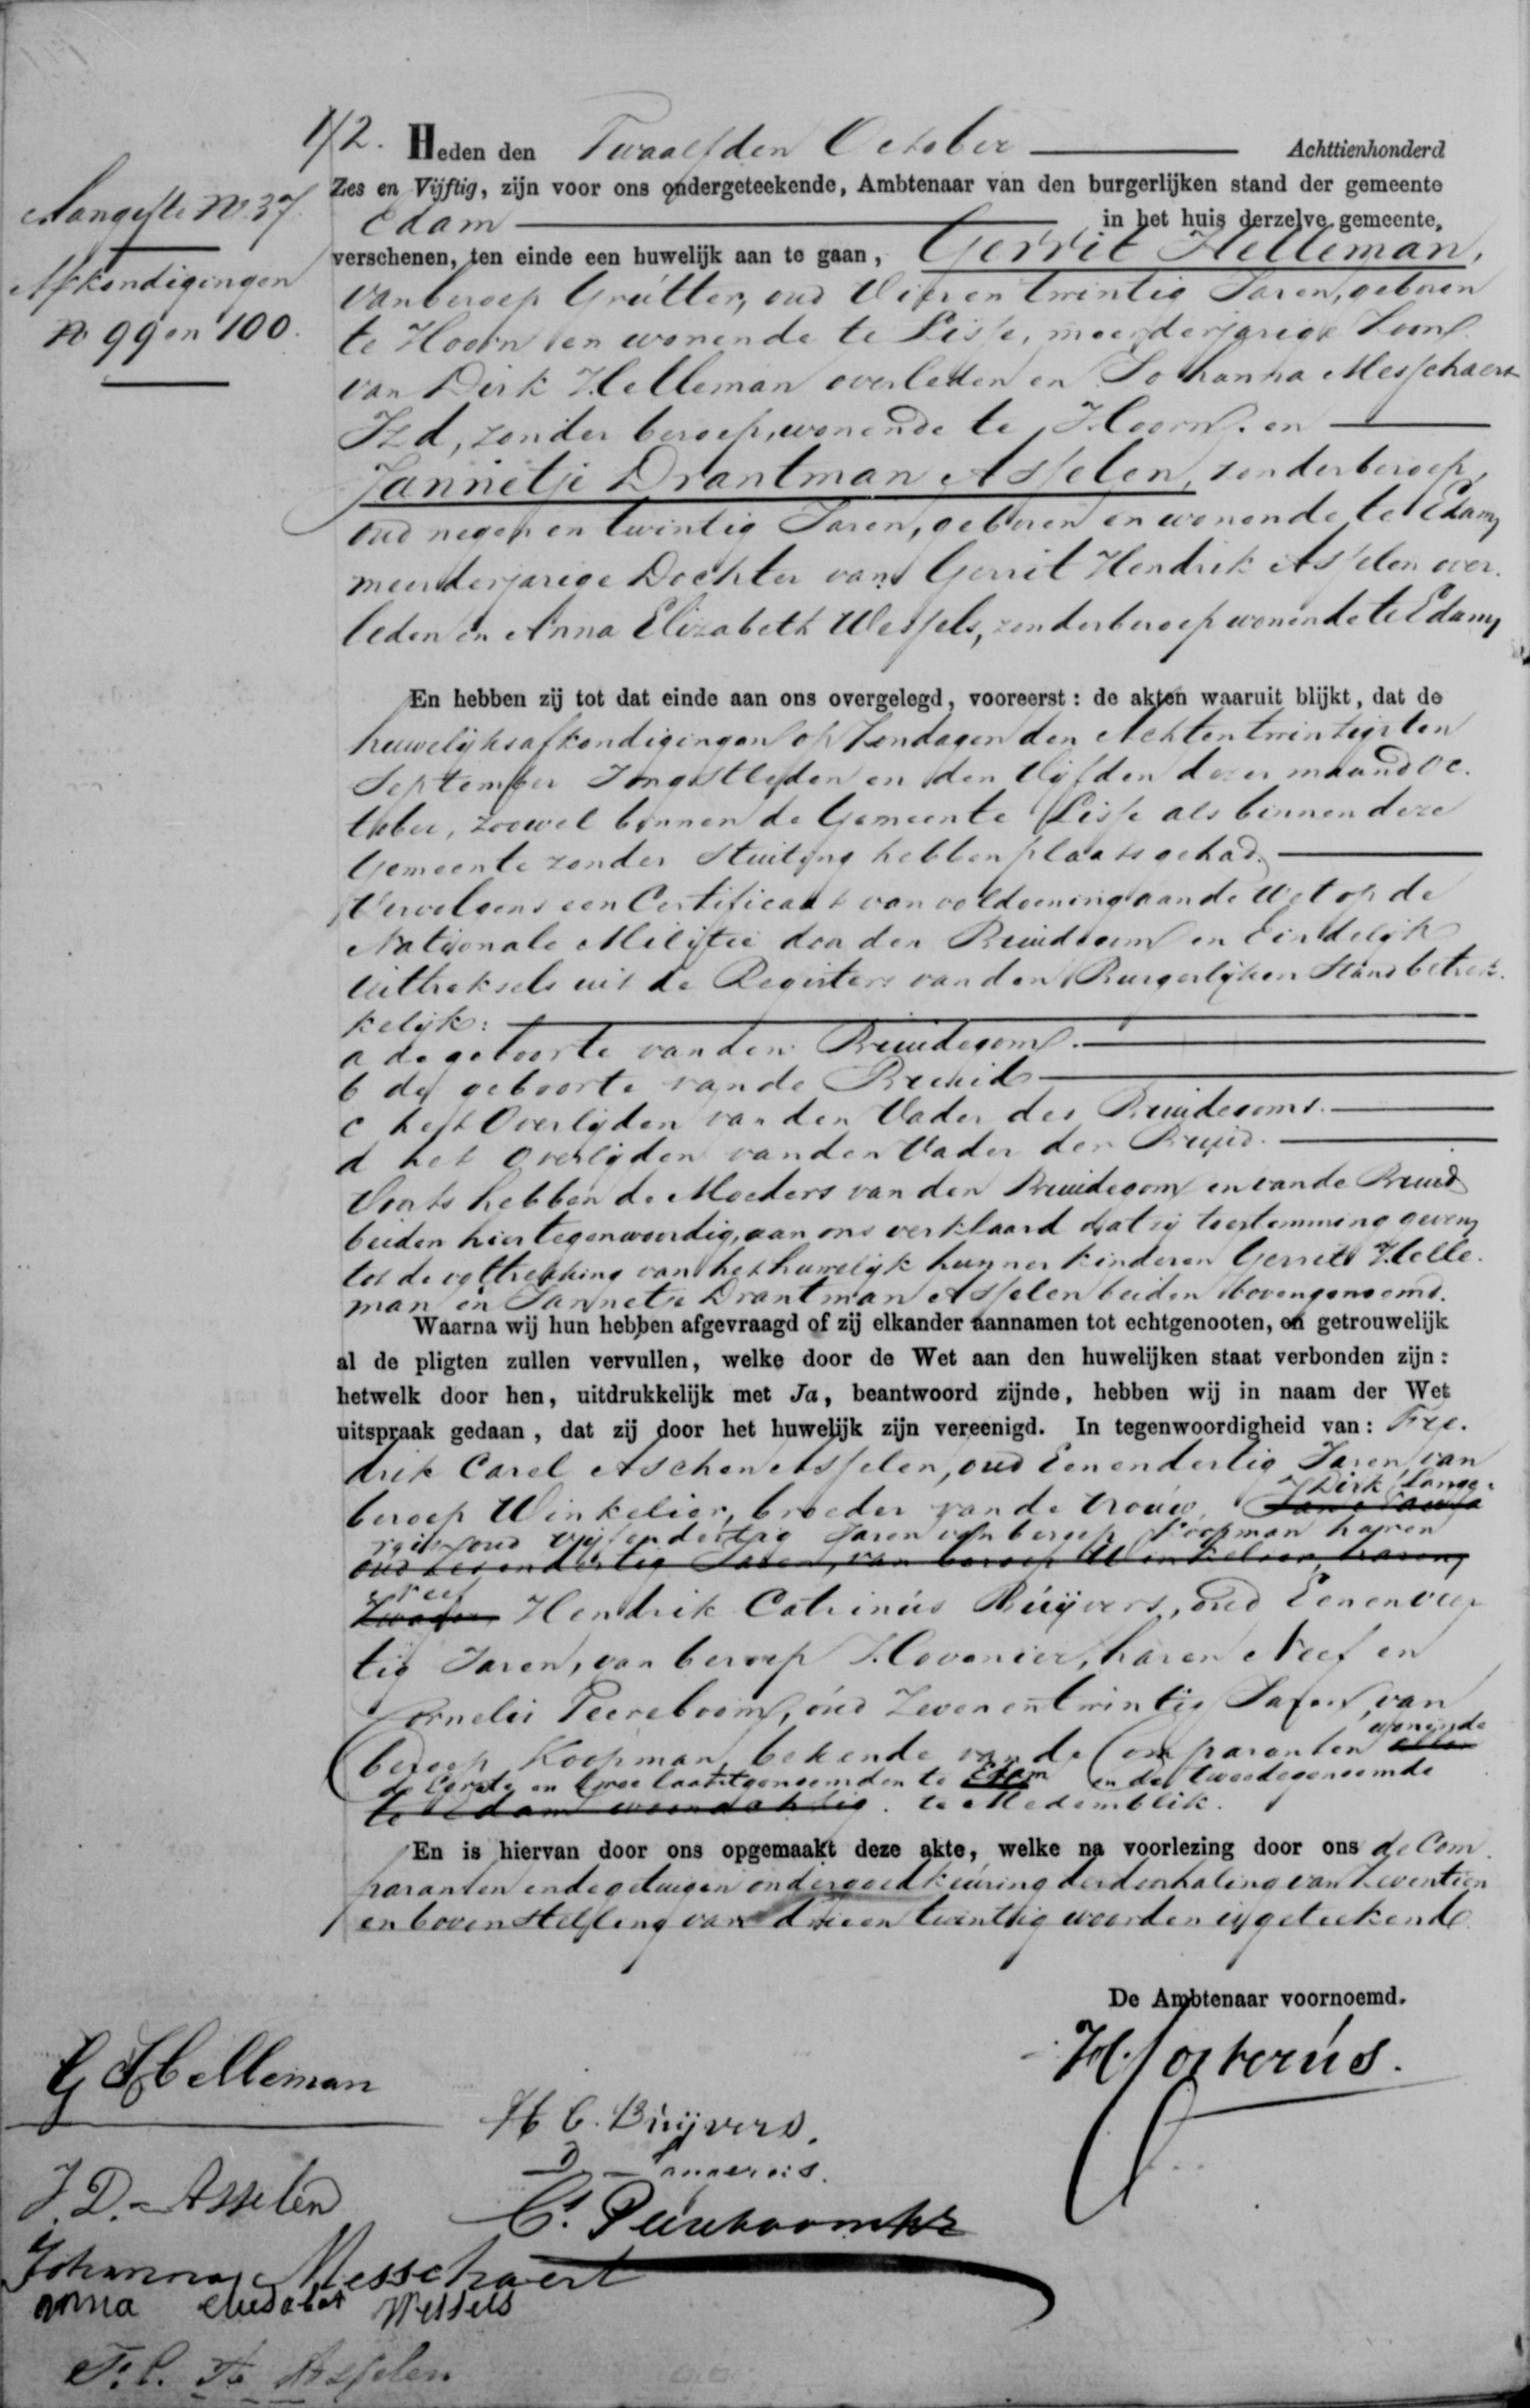 Aangifte No. 37.
Afkondigingen
No 99 en 100.
42. Heden den Twaalfden October Achttienhonderd
Zes en Vijftig, zijn voor ons ondergeteekende, Ambtenaar van den burgerlijken stand der gemeente
Edam in het huis derzelve gemeente,
verschenen, ten einde een huwelijk aan te gaan, Gerrit Helleman,
van beroep Grutter, oud Vier en twintig Jaren, geboren
te Hoorn en wonende te Lisse, meerderjarige Zoon
van Dirk Helleman overleden en Johanna Messchaert
Izd, zonder beroep, wonende te Hoorn. en
Jannetje Drantman Asselen, zonder beroep,
oud negen en twintig Jaren, geboren en wonende te Edam,
meerderjarige Dochter van Gerrit Hendrik Asselen over-
leden en Anna Elizabeth Wessels, zonder beroep wonende te Edam,
En hebben zij tot dat einde aan ons overgelegd, vooreerst: de akten waaruit blijkt, dat de
huwelijksafkondigingen op Zondagen den Achtentwintigsten
September Jongstleden en den Vijfden dezer maand Oc-
tober, zoowel binnen de Gemeente Lisse als binnen deze
Gemeente zonder Stuiting hebben plaats gehad.
Vervolgens een Certificaat van voldoening aan de Wet op de
Nationale Militie door den Bruidegom en Eindelijk
Uittreksels uit de Registers van den Burgerlijken Stand betrek-
kelijk:
a de geboorte van den Bruidegom.
b de geboorte van de Bruid
c het Overlijden van den Vader des Bruidegoms.
d het Overlijden van den Vader der Bruid.
Voorts hebben de Moeders van den Bruidegom en van de Bruid
beiden hier tegenwoordig, aan ons verklaard dat zij toestemming geven,
tot de voltrekking van het huwelijk hunner kinderen Gerrit Helle-
man en Jannetje Drantman Asselen beiden bovengenoemd.
Waarna wij hun hebben afgevraagd of zij elkander aannamen tot echtgenooten, en getrouwelijk
al de pligten zullen vervullen, welke door de Wet aan den huwelijken staat verbonden zijn:
hetwelk door hen, uitdrukkelijk met Ja, beantwoord zijnde, hebben wij in naam der Wet
uitspraak gedaan, dat zij door het huwelijk zijn vereenigd. In tegenwoordigheid van: Fre-
drik Carel Aschen Asselen, oud Een en dertig Jaren, van
beroep Winkelier, broeder van de trouw, Dirk Lange-
reis oud vijf en dertig Jaren van beroep Koopman haren
oud zes en dertig Jaren, van beroep Winkelier, haren
neef
Zwager Hendrik Catrinus Buijvers, oud Een en veer
tig Jaren, van beroep Hovenier, haren Neef en
Cornelis Peereboom, oud Zeven en twintig Jaren, van
wonende
beroep Koopman, bekende van de Comparanten allen
de Eerste en twee laatstgenoemden te Edam en de tweedegenoemde
te Edam woonachtig. te Medemblik.
En is hiervan door ons opgemaakt deze akte, welke na voorlezing door ons de Com-
paranten en de getuigen onder goedkeuring der doorhaling van Zeventien
en bovenstelling van drie en twintig woorden is geteekend.
De Ambtenaar voornoemd.
G Helleman
H C. Buijvers.
D Langereis.
J. D. Asselen
Johanna Messchaert
Anna Wessels
F. C. A. Asselen